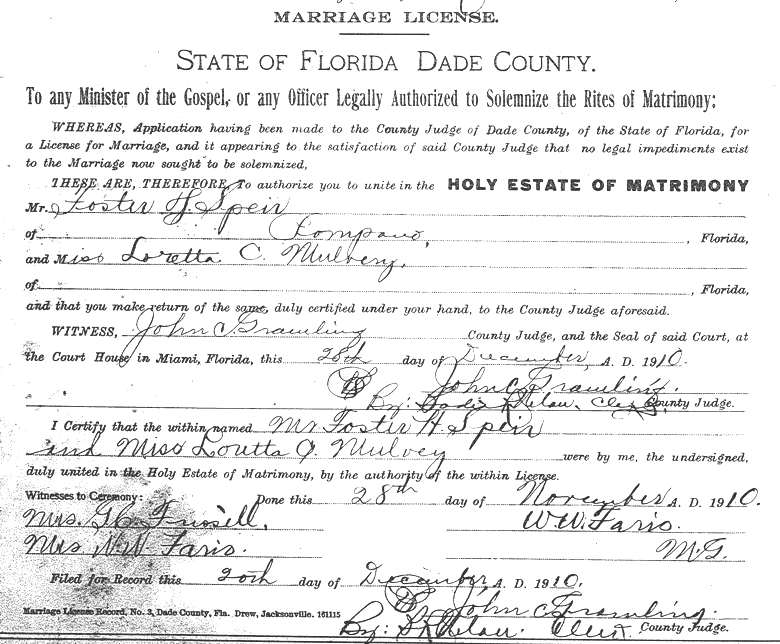 MARRIAGE LICENSE.
STATE OF FLORIDA DADE COUNTY.
To any Minister of the Gospel, or any Officer Legally Authorized to Solemnize the Rites of Matrimony:
WHEREAS, Application having been made to the County Judge of Dade County, of the State of Florida, for
a License for Marriage, and it appearing to the satisfaction of said County Judge that no legal impediments exist
to the Marriage now sought to be solemnized,
THESE ARE, THEREFORE, To authorize you to unite in the HOLY ESTATE OF MATRIMONY
Mr. Foster H. Speir
of Pompano, , Florida,
and Miss Loretta C. Mulvey,
of , Florida,
and that you make return of the same, duly certified under your hand, to the County Judge aforesaid.
WITNESS, John C Gramling County Judge, and the Seal of said Court, at
the Court House in Miami, Florida, this 28th day of December, A. D. 1910.
John C Gramling.
By: County Judge.
I Certify that the within named Mr Foster H. Speir
and Miss Loretta C. Mulvey were by me, the undersigned,
duly united in the Holy Estate of Matrimony, by the authority of the within License.
Witnesses to Ceremony: Done this 28th day of November A. D. 1910.
Mrs. W.W. Faris.
Mrs W.W. Faris. M.G.
Filed for Record this 20th day of December A. D. 1910.
John C Gramling.
Marriage License Record, No. 3, Dade County, Fla. Drew, Jacksonville. 161115
By: Clerk County Judge.